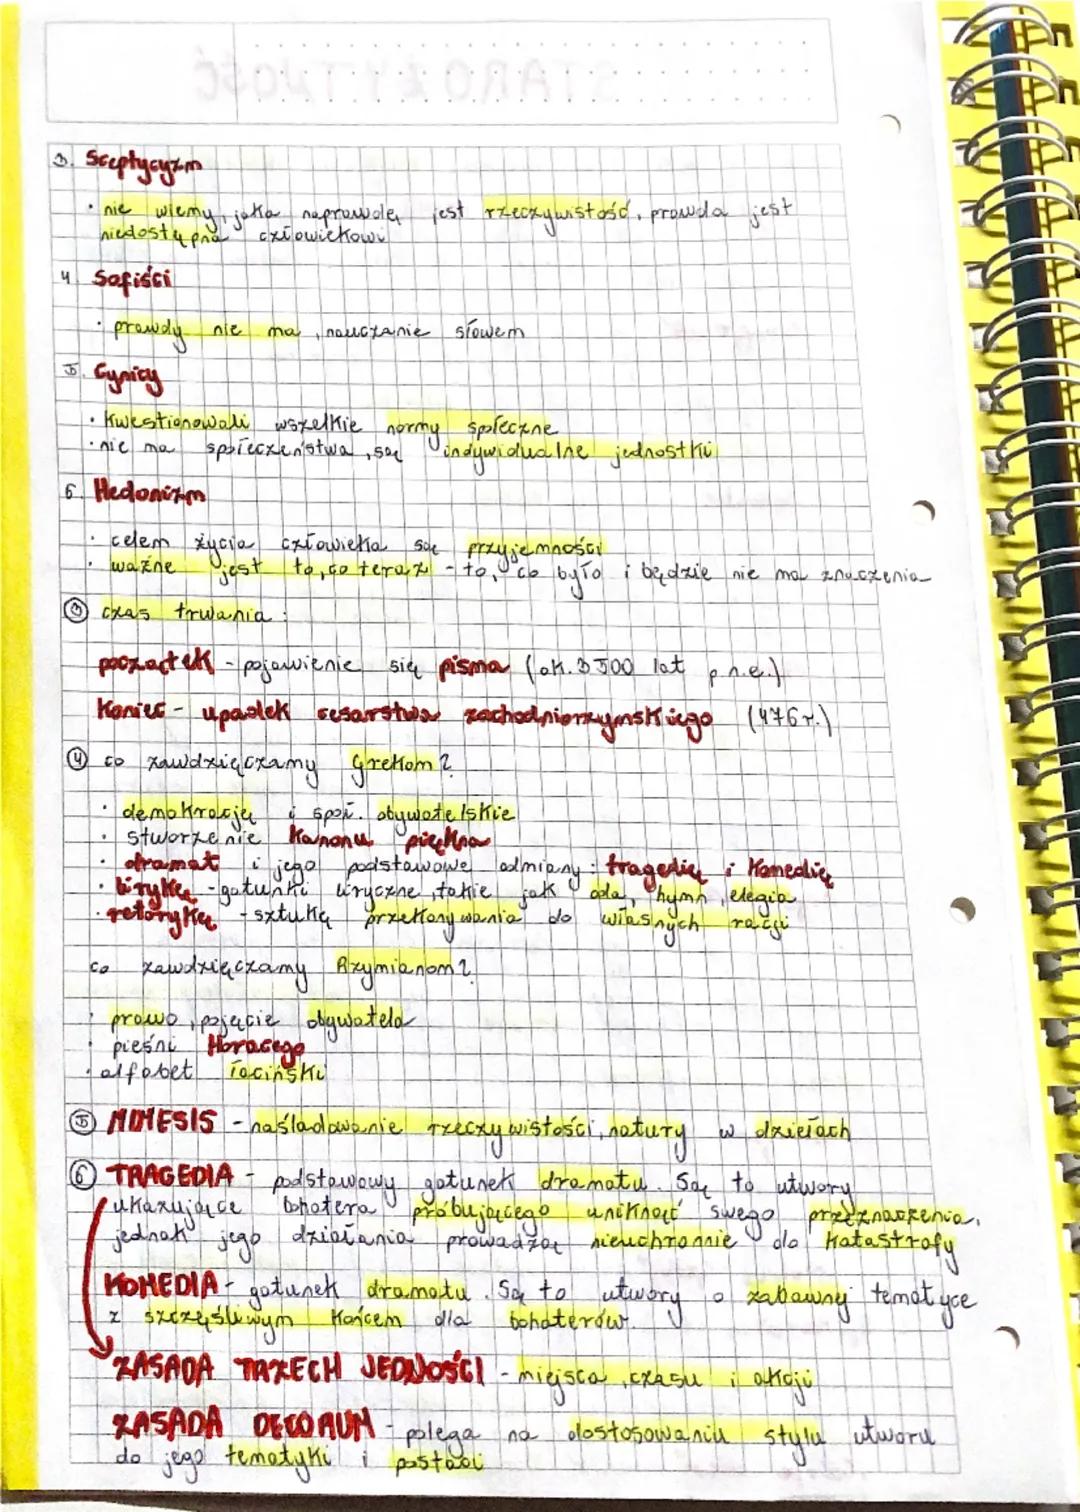 STAROŻYTNOŚĆ
3. Sceptycyzm
· nie wiemy, jaka naprawdę jest rzeczywistość, prawda jest
niedostępna człowiekowi
4. Sofiści
· prawdy nie ma, nauczanie słowem
5. Cynicy
· kwestionowali wszelkie normy społeczne
· nie ma społeczeństwa, są indywidualne jednostki
6. Hedonizm
· celem życia człowieka są przyjemności
· ważne jest to, co teraz - to, co było i będzie nie ma znaczenia
③ czas trwania:
początek - pojawienie się pisma (ok. 3500 lat p.n.e.)
Koniec - upadek cesarstwa zachodniorzymskiego (476 r.)
④ co zawdzięczamy Grekom?
· demokrację i społ. obywatelskie
· stworzenie kanonu piękna
· dramat i jego podstawowe odmiany: tragedię i komedię
· lirykę - gatunki liryczne, takie jak oda, hymn, elegia
· retorykę - sztukę przekonywania do własnych racji
co zawdzięczamy Rzymianom?
· prawo, pojęcie obywatela
· pieśni Horacego
· alfabet łaciński
⑤ MIMESIS - naśladowanie rzeczywistości, natury w dziełach
⑥ TRAGEDIA - podstawowy gatunek dramatu. Są to utwory
ukazujące bohatera próbującego uniknąć swego przeznaczenia,
jednak jego działania prowadzą nieuchronnie do katastrofy
KOMEDIA - gatunek dramatu. Są to utwory o zabawnej tematyce
z szczęśliwym końcem dla bohaterów.
ZASADA TRZECH JEDNOŚCI - miejsca, czasu i akcji
ZASADA DECORUM - polega na dostosowaniu stylu utworu
do jego tematyki i postaci